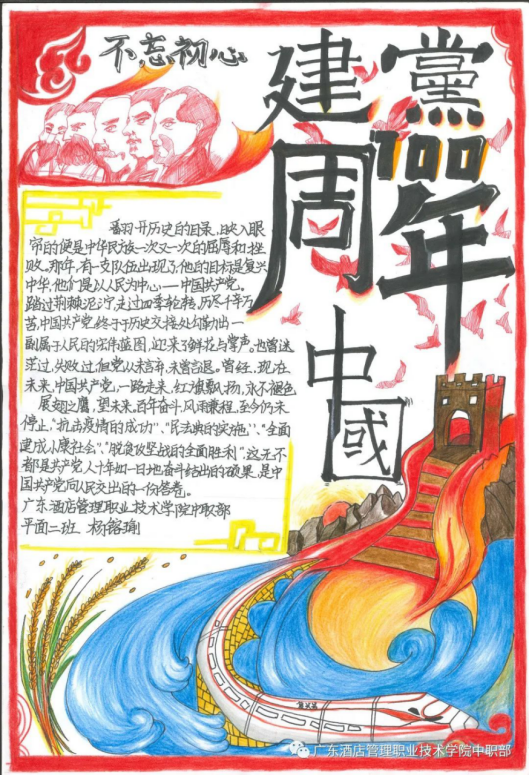 不忘初心
建黨100周年
中國
翻开历史的目录,映入眼
帘的便是中华民族一次又一次的屈辱和挫
败。那年,有一支队伍出现了,他的目标是复兴
中华,他们是以人民为中心——中国共产党。
踏过荆棘泥泞,走过四季轮转,历尽千辛万
苦,中国共产党,终于于历史交接处勾勒出一
副属于人民的宏伟蓝图,迎来了鲜花与掌声。也曾迷
茫过,失败过,但党从未言弃,未曾言退。曾经,现在
未来,中国共产党,一路走来,红旗飘扬,永不褪色
展翅之鹰,望未来,百年奋斗,风雨兼程,至今仍未
停止,"抗击疫情的成功"、"民法典的实施"、"全面
建成小康社会"、"脱贫攻坚战的全面胜利",这无不
都是共产党人十年如一日地奋斗结出的硕果,是中
国共产党向人民交出的一份答卷。
广东酒店管理职业技术学院中职部
平面二班 杨
复兴号
广东酒店管理职业技术学院中职部